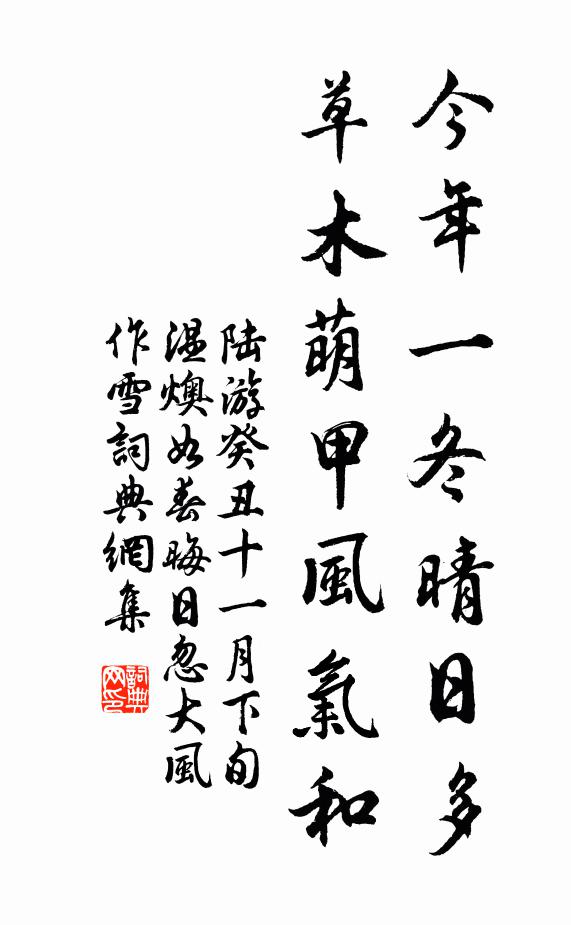 今年一冬晴日多
草木萌甲風氣和
陆游癸丑十一月下旬
温燠如春晦日忽大風
作雪詞典網集
詞典网印